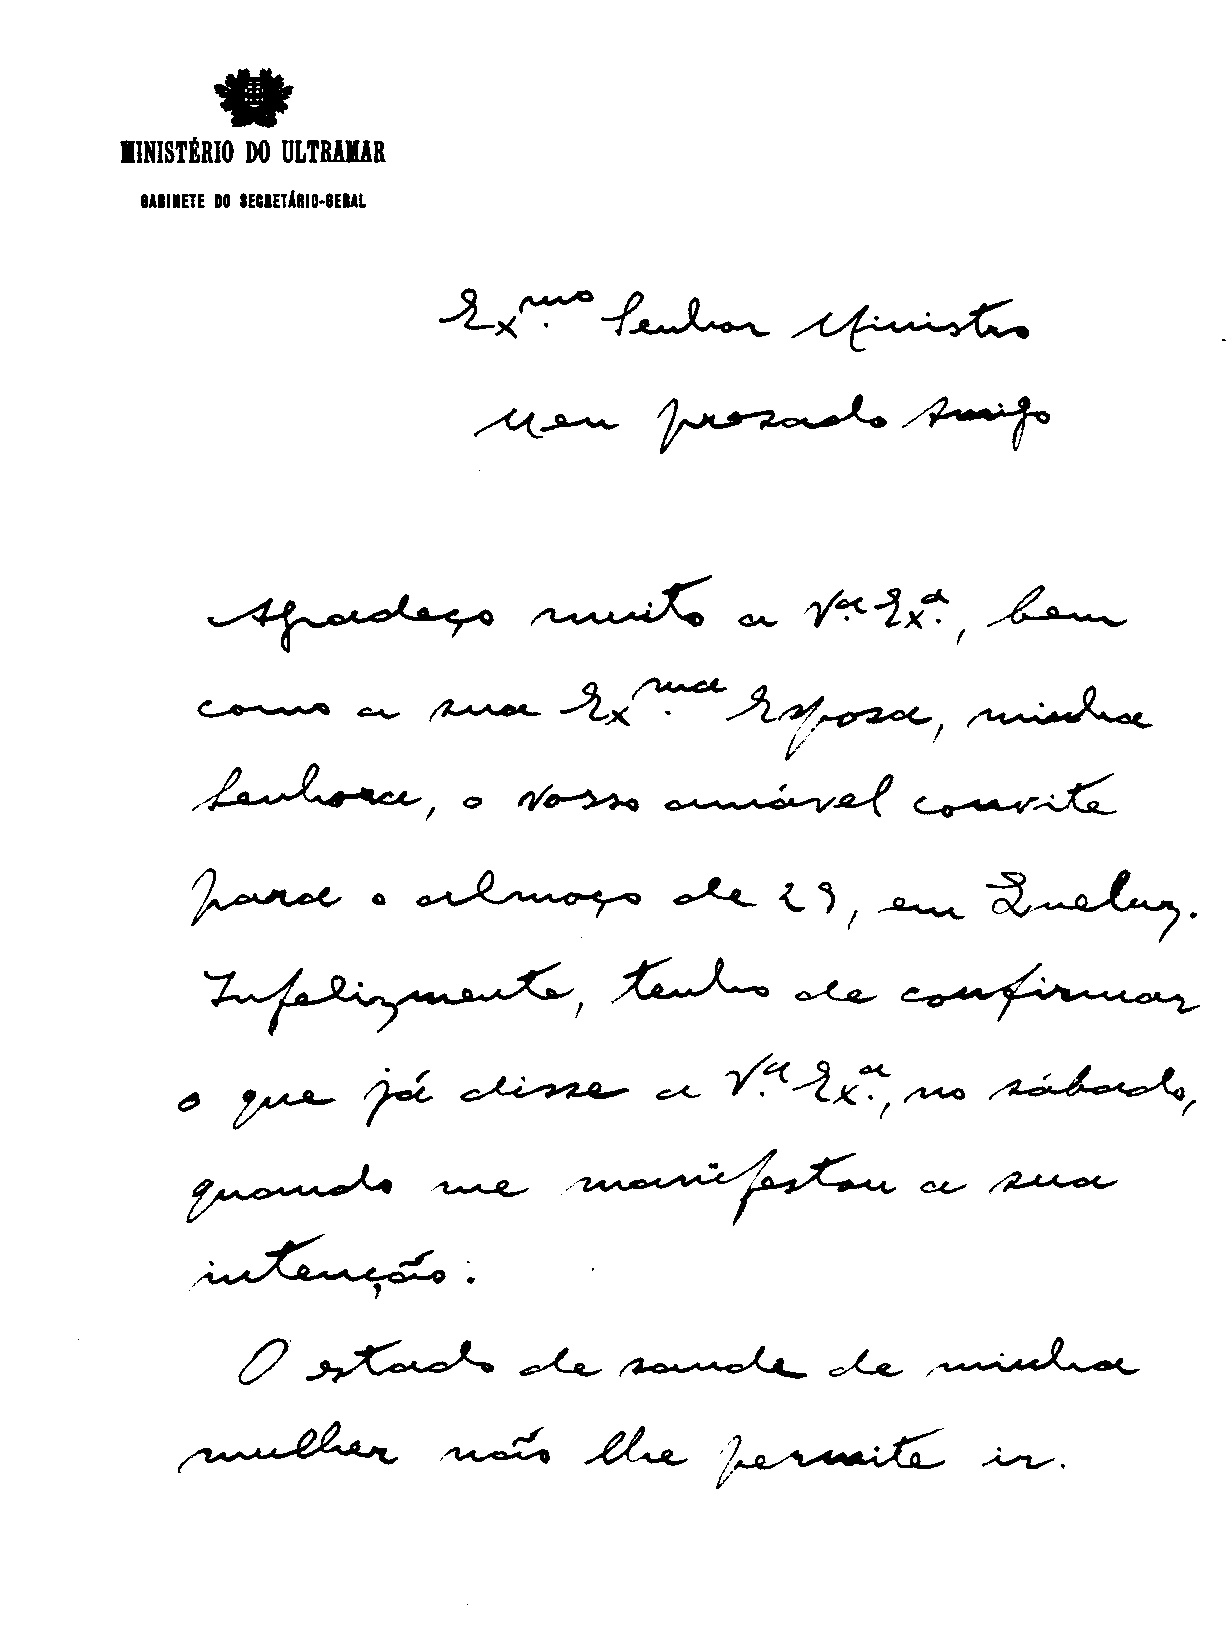 MINISTÉRIO DO ULTRAMAR
GABINETE DO SECRETÁRIO-GERAL
Ex.mo Senhor Ministro
Meu prezado Amigo
Agradeço muito a V.a Ex.a, bem
como a sua Ex.ma Esposa, minha
Senhora, o vosso amável convite
para o almoço de 29, em Queluz.
Infelizmente, tenho de confirmar
o que já disse a V.a Ex.a, no sábado,
quando me manifestou a sua
intenção.
O estado de saude de minha
mulher não lhe permite ir.